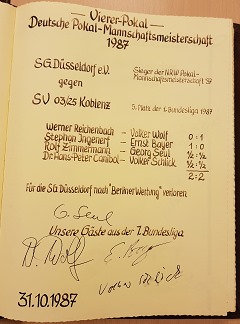 Vierer-Pokal
Deutsche Pokal-Mannschaftsmeisterschaft
1987
S.G. Düsseldorf e.V. Sieger der NRW Pokal-
Mannschaftsmeisterschaft '87
gegen
SV 03/25 Koblenz 5. Platz der 1. Bundesliga 1987
Werner Reichenbach - Volker Wolf 0:1
Stephan Ingenerf - Ernst Bayer 1:0
Rolf Zimmermann - Georg Seul ½:½
Dr. Hans-Peter - Volker Schlick ½:½
2:2
Für die SG Düsseldorf nach "Berliner Wertung" verloren
G. Seul
Unsere Gäste aus der 1. Bundesliga
V. Wolf
Volker Schlick
31.10.1987